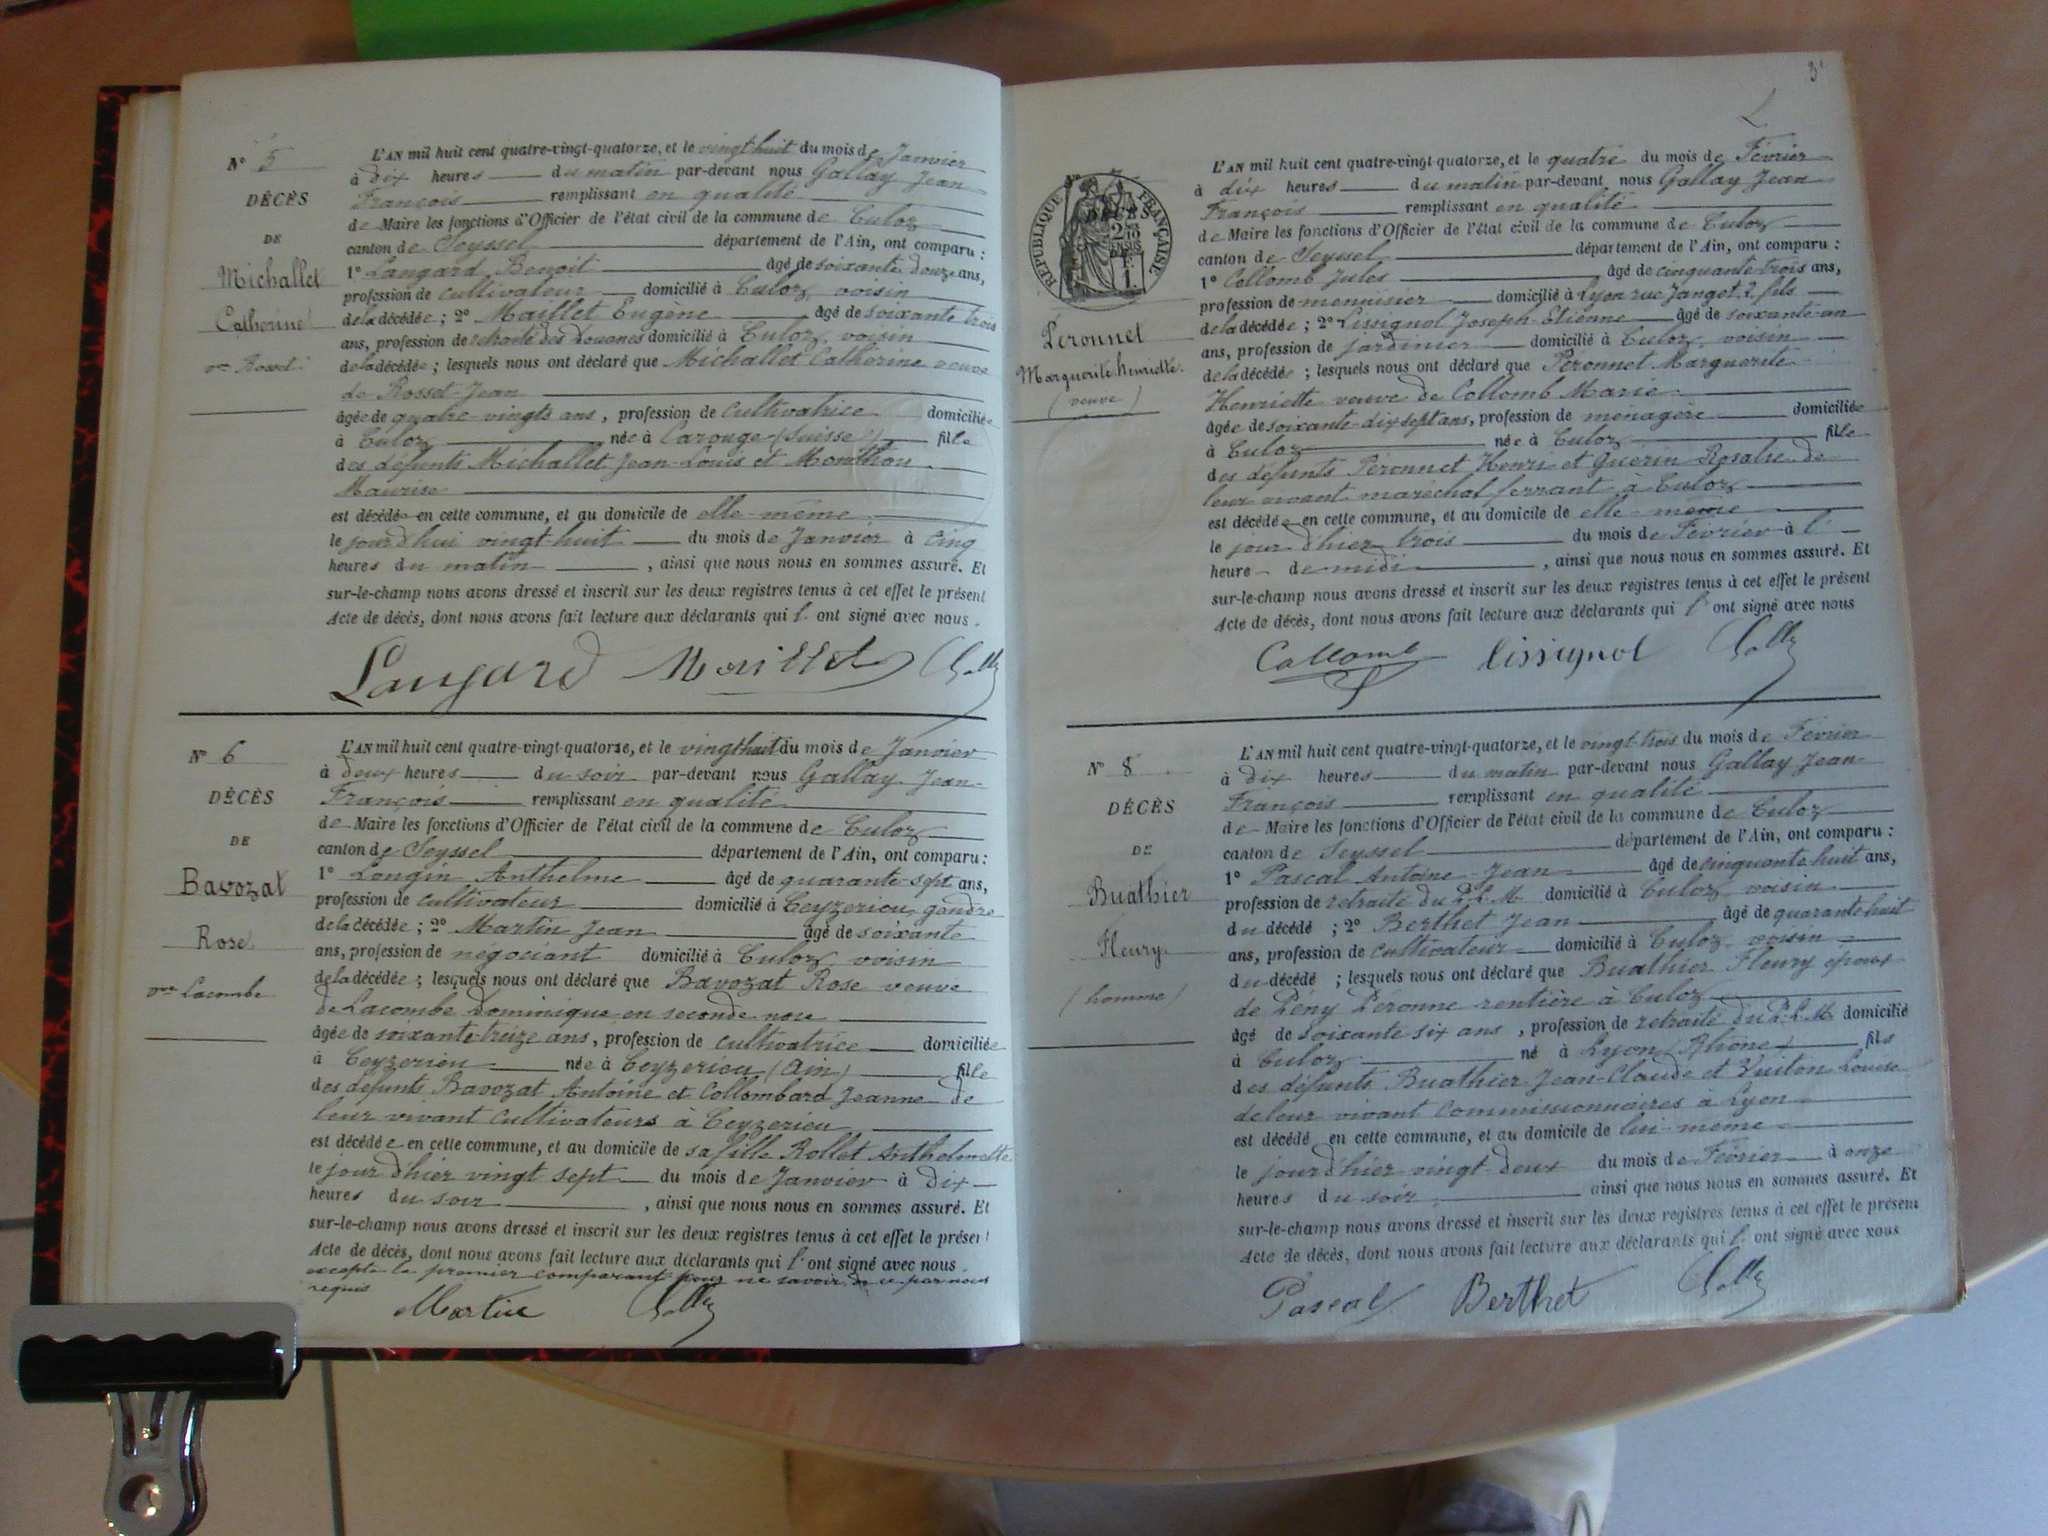 N° 5
DÉCÈS
DE
Michallet
Catherine
vve Rosset
L'AN mil huit cent quatre-vingt-quatorze, et le vingt huit du mois de Janvier
à dix heures du matin par-devant nous Gallay Jean
François remplissant en qualité
de Maire les fonctions d'Officier de l'état civil de la commune de Culoz
canton de Seyssel département de l'Ain, ont comparu :
1° Langard Benoit âgé de soixante douze ans,
profession de cultivateur domicilié à Culoz, voisin
de la décédée ; 2° Maillet Eugène âgé de soixante trois
ans, profession de retraité des Douanes domicilié à Culoz, voisin
de la décédée ; lesquels nous ont déclaré que Michallet Catherine veuve
de Rosset Jean
âgée de quatre-vingts ans, profession de cultivatrice domiciliée
à Culoz née à Carouge (Suisse) fille
des défunts Michallet Jean-Louis et Monthou
Maurise
est décédée en cette commune, et au domicile de elle-même
le jourd'hui vingt-huit du mois de Janvier à cinq
heures du matin, ainsi que nous nous en sommes assuré. Et
sur-le-champ nous avons dressé et inscrit sur les deux registres tenus à cet effet le présent
Acte de décès, dont nous avons fait lecture aux déclarants qui l'ont signé avec nous.
Langard Maillet Gallay
N° 6
DÉCÈS
DE
Bavozat
Rose
vve Lacombe
L'AN mil huit cent quatre-vingt-quatorze, et le vingt huit du mois de Janvier
à deux heures du soir par-devant nous Gallay Jean-
François remplissant en qualité
de Maire les fonctions d'Officier de l'état civil de la commune de Culoz
canton de Seyssel département de l'Ain, ont comparu :
1° Longin Anthelme âgé de quarante-sept ans,
profession de cultivateur domicilié à Ceyzerieu, gendre
de la décédée ; 2° Martin Jean âgé de soixante
ans, profession de négociant domicilié à Culoz, voisin
de la décédée ; lesquels nous ont déclaré que Bavozat Rose veuve
de Lacombe Dominique en seconde noce
âgée de soixante-treize ans, profession de cultivatrice domiciliée
à Ceyzerieu née à Ceyzerieu (Ain) fille
des défunts Bavozat Antoine et Collombard Jeanne de
leur vivant cultivateurs à Ceyzerieu
est décédée en cette commune, et au domicile de sa fille Rollet Anthelmette
le jour d'hier vingt sept du mois de Janvier à dix
heures du soir, ainsi que nous nous en sommes assuré. Et
sur-le-champ nous avons dressé et inscrit sur les deux registres tenus à cet effet le présent
Acte de décès, dont nous avons fait lecture aux déclarants qui l'ont signé avec nous.
excepté le premier comparant pour ne savoir de ce par nous
requis
Martin Gallay
3
RÉPUBLIQUE FRANÇAISE
2/10 EN SUS
1 F.
DÉCÈS
Péronnet
Marguerite Henriette
(veuve)
L'AN mil huit cent quatre-vingt-quatorze, et le quatre du mois de Février
à dix heures du matin par-devant nous Gallay Jean
François remplissant en qualité
de Maire les fonctions d'Officier de l'état civil de la commune de Culoz
canton de Seyssel département de l'Ain, ont comparu :
1° Collomb Jules âgé de cinquante-trois ans,
profession de menuisier domicilié à Lyon rue Janget 2 fils
de la décédée ; 2° Lissignol Joseph-Etienne âgé de soixante-un
ans, profession de jardinier domicilié à Culoz, voisin
de la décédée ; lesquels nous ont déclaré que Péronnet Marguerite
Henriette veuve de Collomb Marie
âgée de soixante-dix sept ans, profession de ménagère domiciliée
à Culoz née à Culoz fille
des défunts Péronnet Henri et Guérin Rosalie de
leur vivant maréchal ferrant à Culoz
est décédée en cette commune, et au domicile de elle-même
le jour d'hier trois du mois de Février à l'
heure de midi, ainsi que nous nous en sommes assuré. Et
sur-le-champ nous avons dressé et inscrit sur les deux registres tenus à cet effet le présent
Acte de décès, dont nous avons fait lecture aux déclarants qui l'ont signé avec nous
Collomb Lissignol Gallay
N° 8
DÉCÈS
DE
Buathier
Fleury
(homme)
L'AN mil huit cent quatre-vingt-quatorze, et le vingt-trois du mois de Février
à dix heures du matin par-devant nous Gallay Jean-
François remplissant en qualité
de Maire les fonctions d'Officier de l'état civil de la commune de Culoz
canton de Seyssel département de l'Ain, ont comparu :
1° Pascal Antoine-Jean âgé de cinquante huit ans,
profession de retraité du P.L.M. domicilié à Culoz, voisin
du décédé ; 2° Berthet Jean âgé de quarante huit
ans, profession de cultivateur domicilié à Culoz, voisin
du décédé ; lesquels nous ont déclaré que Buathier Fleury époux
de Pény Péronne rentière à Culoz
âgé de soixante six ans, profession de retraité du P.L.M. domicilié
à Culoz né à Lyon (Rhône) fils
des défunts Buathier Jean-Claude et Vuiton Louise
de leur vivant commissionnaires à Lyon
est décédé en cette commune, et au domicile de lui-même
le jour d'hier vingt-deux du mois de Février à onze
heures du soir ainsi que nous nous en sommes assuré. Et
sur-le-champ nous avons dressé et inscrit sur les deux registres tenus à cet effet le présent
Acte de décès, dont nous avons fait lecture aux déclarants qui l'ont signé avec nous
Pascal Berthet Gallay